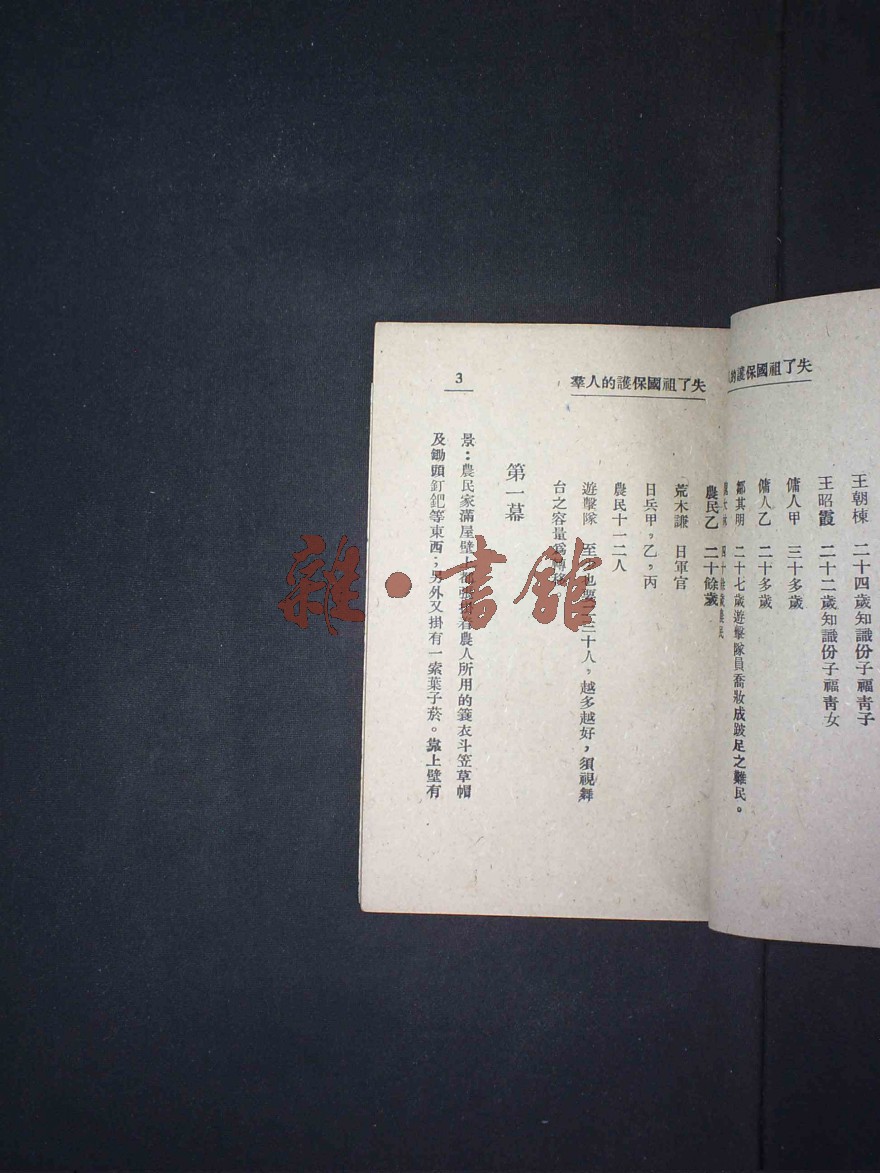 失了祖國保護的
王朝棟　二十四歲知識份子福靑子
王昭霞　二十二歲知識份子福靑女
傭人甲　三十多歲
傭人乙　二十多歲
鄒其明　二十七歲遊擊隊員喬妝成跛足之難民。
失了祖國保護的人羣
農民乙　二十餘歲
荒木謙　日軍官
日兵甲，乙，丙
農民十一二人
遊擊隊　至少也要二三十人，越多越好，須視舞
台之容量爲轉移
第一幕
景：農民家滿屋壁上都張掛着農人所用的簑衣斗笠草帽
及鋤頭釘鈀等東西；另外又掛有一索葉子菸。靠上壁有
3
雜·書館